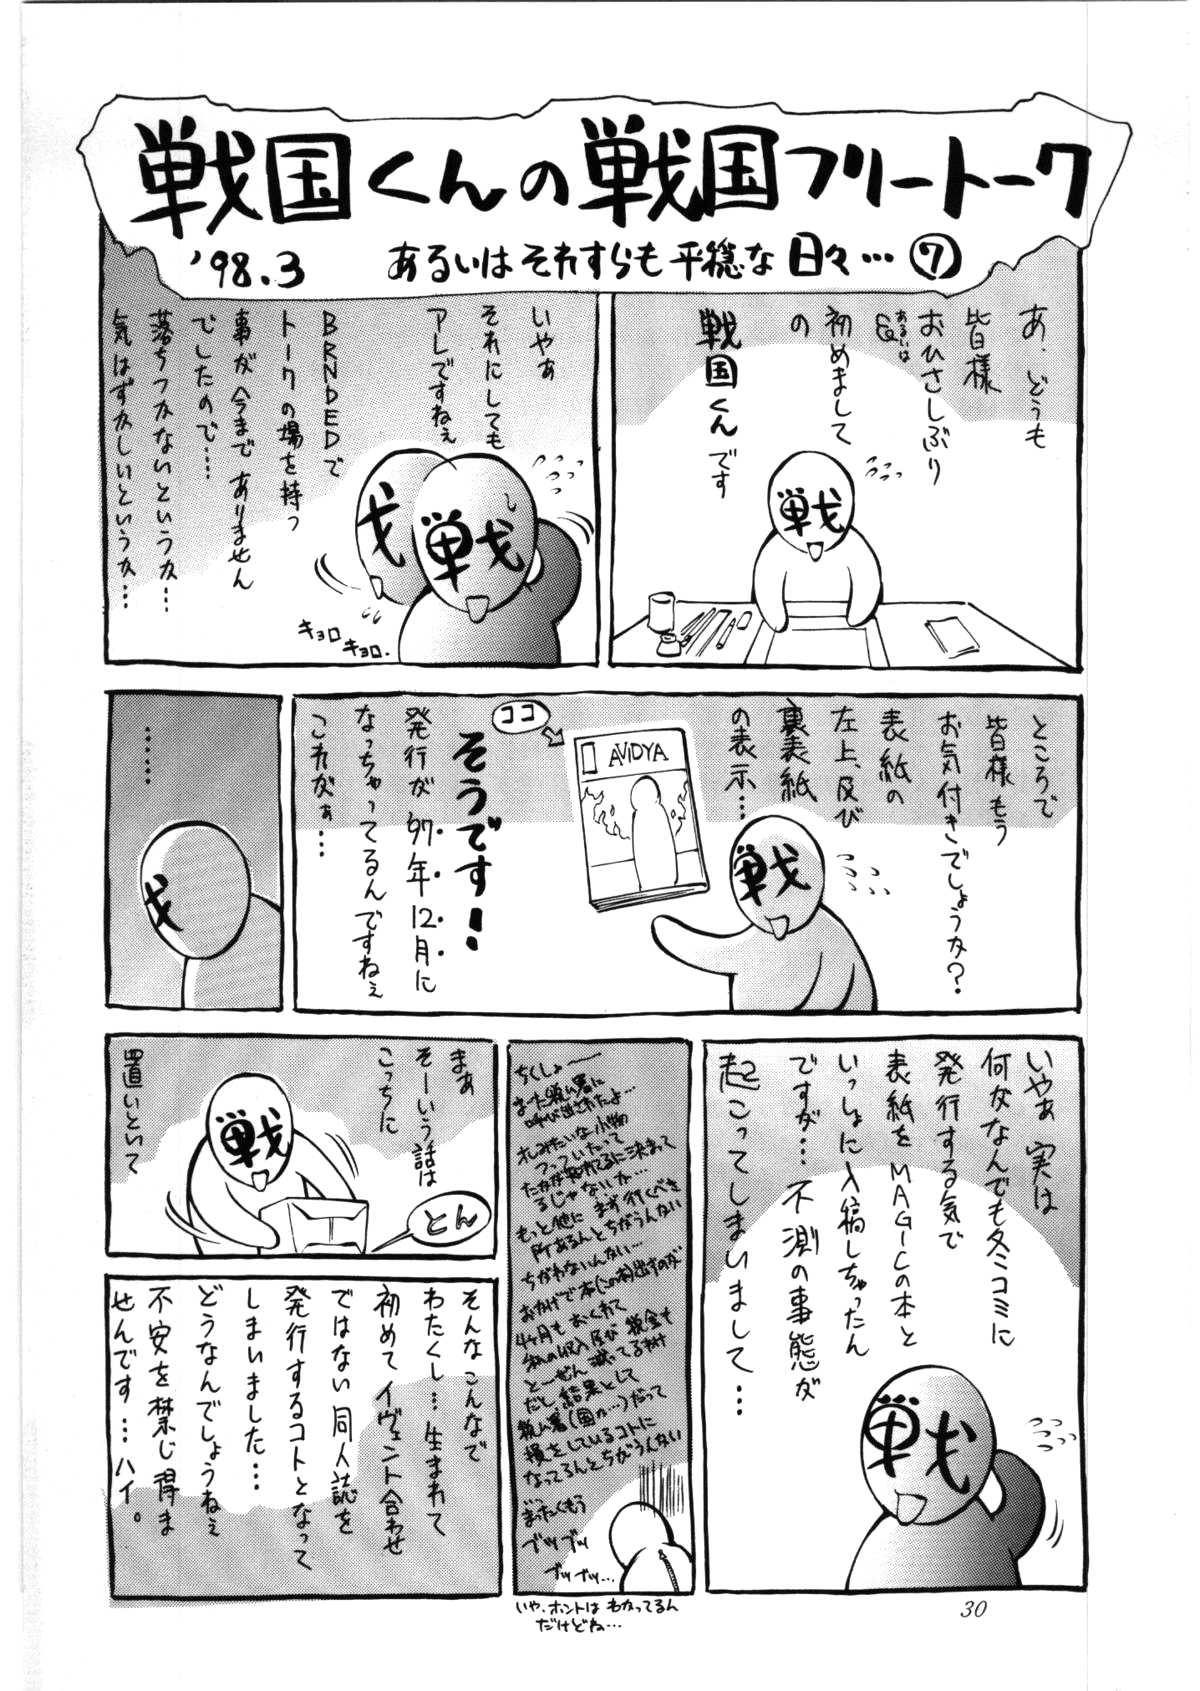 戦国くんの戦国フリートーク
'98.3 あるいはそれすらも平穏な日々…⑦
あ、どうも
皆様
おひさしぶり
あるいは
初めまして
の
戦国くんです
戦
いやぁ
それにしても
アレですねぇ
BRNDEDで
トークの場を持つ
事が今までありません
でしたので……
落ちつかないというか…
気はずかしいというか…
戈
戦
キョロ
キョロ.
ところで
皆様もう
お気付きでしょうか?
表紙の
左上、及び
裏表紙
の表示…
ココ
AVIDYA
戦
そうです!
発行が'97年12月に
なっちゃってるんですねぇ
これがぁ…
……
戈
いやぁ実は
何がなんでも冬コミに
発行する気で
表紙をMAGICの本と
いっしょに入稿しちゃったん
ですが…不測の事態が
起こってしまいまして…
戦
ちくしょ〜
また税ム署に
呼び出されたよ…
オレみたいな小物
つっついたって
たかが知れてるに決まって
るじゃないか…
もっと他にまず行くべき
所あるんとちがうんない
ちがわないんない…
おかげで本(この本)出すのが
4ヶ月もおくれて
私の収入及び税金も
と〜ぜん減ってるわけ
だし結果として
税ム署(国か…)だって
損をしているコトに
なってるんとちがうんない
まったくもう
ブツブツ
ブツブツ…
いや、ホントはわかってるん
だけどね…
まあ
そーいう話は
こっちに
置いといて
戦
とん
そんなこんなで
わたくし…生まれて
初めてイヴェント合わせ
ではない同人誌を
発行するコトとなって
しまいました…
どうなんでしょうねぇ
不安を禁じ得ま
せんです…ハイ。
30